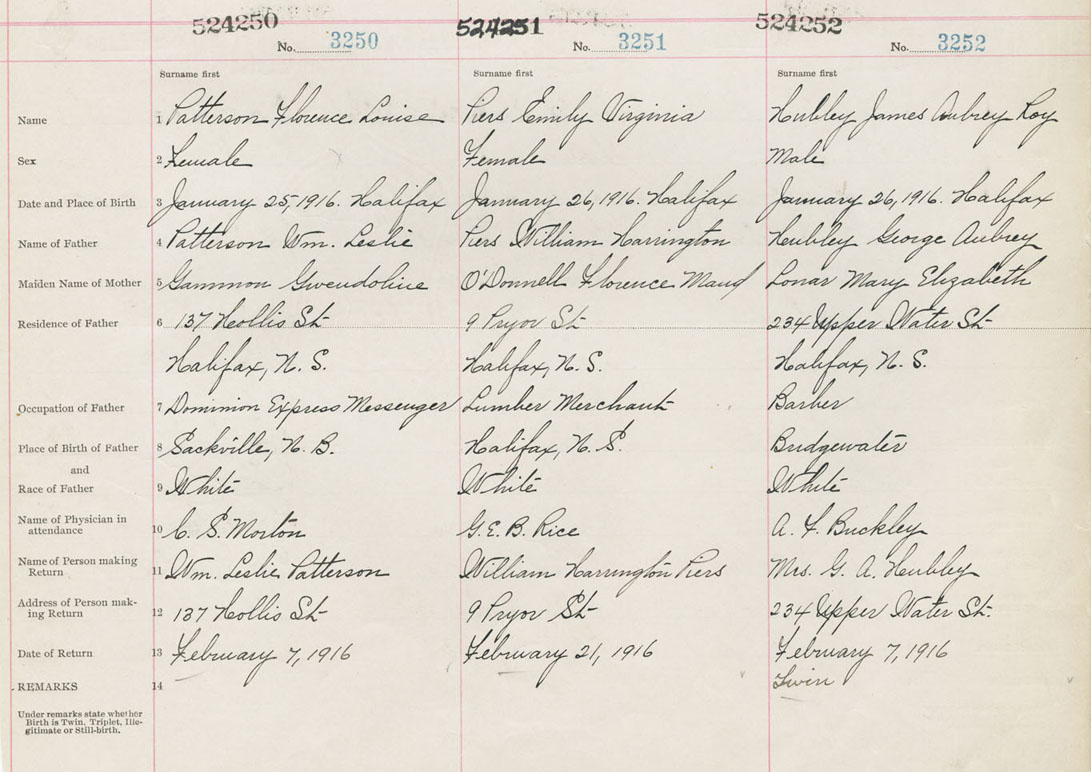 524250 524251 524252
No. 3250 No. 3251 No. 3252
Surname first Surname first Surname first
Name 1 Patterson Florence Louise Piers Emily Virginia Hubley James Aubrey Roy
Sex 2 Female Female Male
Date and Place of Birth 3 January 25, 1916. Halifax January 26, 1916. Halifax January 26, 1916. Halifax
Name of Father 4 Patterson Wm. Leslie Piers William Harrington Hubley George Aubrey
Maiden Name of Mother 5 Gammon Gwendoline O'Donnell Florence Maud Lonar Mary Elizabeth
Residence of Father 6 137 Hollis St 9 Pryor St 234 Upper Water St
Halifax, N. S. Halifax, N. S. Halifax, N. S.
Occupation of Father 7 Dominion Express Messenger Lumber Merchant Barber
Place of Birth of Father 8 Sackville, N. B. Halifax, N. S. Bridgewater
and
Race of Father 9 White White White
Name of Physician in
attendance 10 C. S. Morton G. E. B. Rice A. F. Buckley
Name of Person making
Return 11 Wm. Leslie Patterson William Harrington Piers Mrs. G. A. Hubley
Address of Person mak-
ing Return 12 137 Hollis St 9 Pryor St 234 Upper Water St.
Date of Return 13 February 7, 1916 February 21, 1916 February 7, 1916
REMARKS 14 Twin
Under remarks state whether
Birth is Twin, Triplet, Ille-
gitimate or Still-birth.